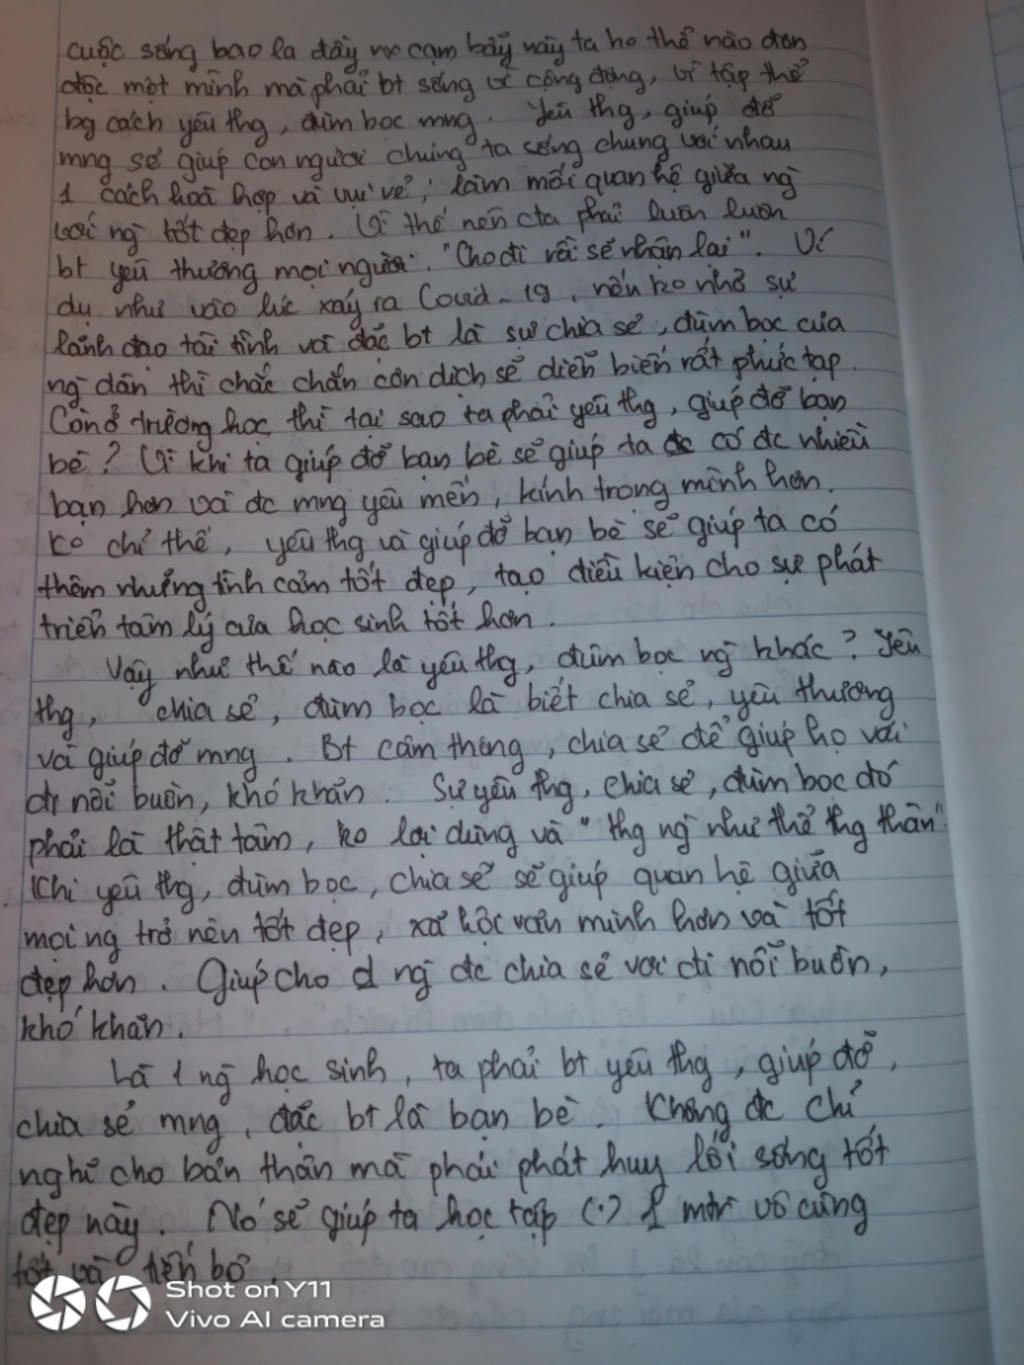 cuộc sống bao la đầy cạm bẫy này ta ko thể nào đơn
độc một mình mà phải bt sống vì cộng đồng, vì tập thể
bg cách yêu thg, đùm bọc mng. Yêu thg, giúp đỡ
mng sẽ giúp con người chúng ta sống chung với nhau
1 cách hoà hợp và vui vẻ, làm mối quan hệ giữa ng
với ng tốt đẹp hơn. Vì thế nên cta phải luôn luôn
bt yêu thương mọi người. "Cho đi rồi sẽ nhận lại". Ví
dụ như vào lúc xảy ra Covid-19, nếu ko nhờ sự
lãnh đạo tài tình và đắc bt là sự chia sẻ, đùm bọc của
ng dân thì chắc chắn cơn dịch sẽ diễn biến rất phức tạp.
Còn ở trường học thì tại sao ta phải yêu thg, giúp đỡ bạn
bè? Vì khi ta giúp đỡ bạn bè sẽ giúp ta có đc nhiều
bạn hơn và đc mng yêu mến, kính trọng mình hơn.
Ko chỉ thế, yêu thg và giúp đỡ bạn bè sẽ giúp ta có
thêm những tình cảm tốt đẹp, tạo điều kiện cho sự phát
triển tâm lý của học sinh tốt hơn.
Vậy như thế nào là yêu thg, đùm bọc ng khác? Yêu
thg, chia sẻ, đùm bọc là biết chia sẻ, yêu thương
và giúp đỡ mng. Bt cảm thông, chia sẻ để giúp họ vơi
đi nỗi buồn, khó khăn. Sự yêu thg, chia sẻ, đùm bọc đó
phải là thật tâm, ko lợi dụng và "thg ng như thể thg thân".
Khi yêu thg, đùm bọc, chia sẻ sẽ giúp quan hệ giữa
mọi ng trở nên tốt đẹp, xã hội văn minh hơn và tốt
đẹp hơn. Giúp cho ng đc chia sẻ vơi đi nỗi buồn,
khó khăn.
Là 1 ng học sinh, ta phải bt yêu thg, giúp đỡ,
chia sẻ mng, đắc bt là bạn bè. Không đc chỉ
nghĩ cho bản thân mà phải phát huy lối sống tốt
đẹp này. Nó sẽ giúp ta học tập (.) 1 mtr vô cùng
tốt và tiến bộ.
Shot on Y11
Vivo AI camera